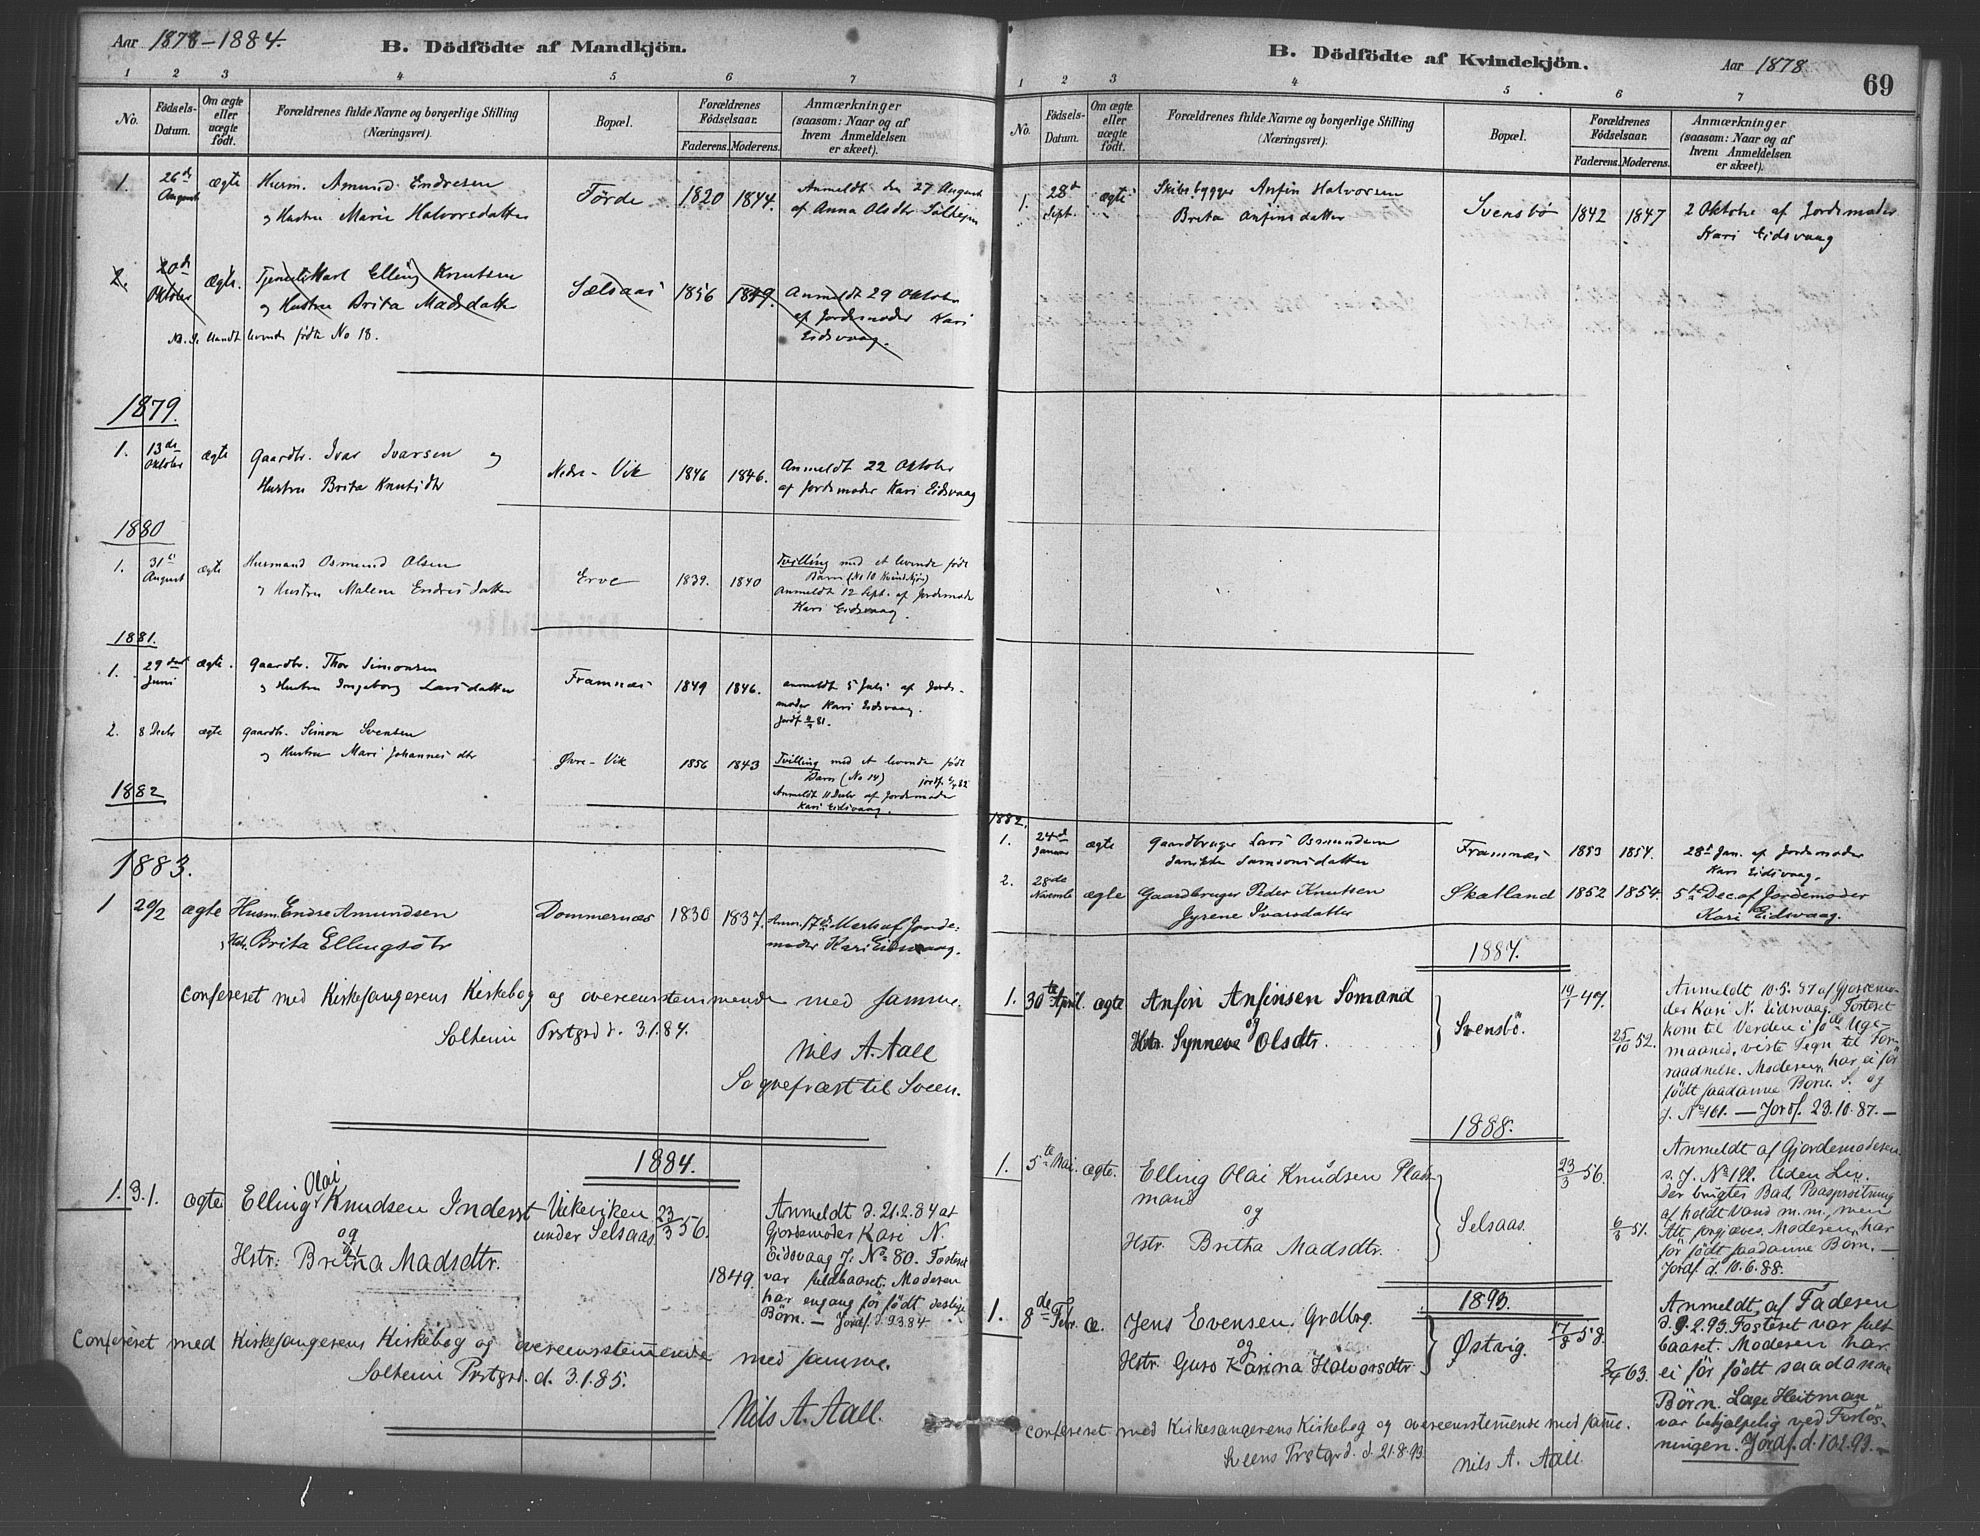 Aar 1878-1884.
B. Dödfödte af Mandkjön.
1 2 3 4 5 6 7
No. Födsels-Datum. Om ægte eller uægte födt. Forældrenes fulde Navne og borgerlige Stilling (Næringsvei). Bopæl. Forældrenes Födselsaar. Faderens. Moderens. Anmærkninger (saasom: Naar og af hvem Anmeldelsen er skeet).
1. 26de August ægte Husm. Amund Endresen Förde 1820 1844. Anmeldt den 27 August
og Hustru Marie Halvorsdatter af Anna Olsdtr
2. 20de Oktober ægte. Elling Knutsen Sælsaas 1856 1849. Anmeldt 29 Oktober
og Hustru Brita Madsdatter af Jordemoder Kari
Eidsvaag.
levende födte No 18.
1879.
1. 13de Oktober ægte Gaardbr. Ivar Ivarsen og Nedre-Vik 1846 1846. Anmeldt 22 Oktober
Hustru Brita Knutsdtr af Jordemoder Kari Eidsvaag
1880
1. 31te August ægte Husmand Osmund Olsen Erve 1839. 1840 Tvilling med et levende födt
og Hustru Malene Endresdatter Barn (No 10 Kvindekjön)
Anmeldt 12 Sept. af Jordemoder
Kari Eidsvaag.
1881.
1. 29de Juni ægte. Gaardbr. Thor Simonsen Framnæs 1849 1846. anmeldt 5 Juli af Jorde-
og Hustru Ingeborg Larsdatter moder Kari Eidsvaag.
2. 8 Decbr ægte Gaardbr. Simon Svensen Övre-Vik 1856 1843 Tvilling med et levende födt
og Hustru Mari Johannesdtr Barn (No 14)
Anmeldt 11 Decbr af Jordemoder
Kari Eidsvaag.
1882
1883.
1 20/2 ægte Husm. Endre Amundsen Dommernæs 1830 1837. Anm. 17de Marts af Jorde-
Hstr. Brita Ellingsdtr moder Kari Eidsvaag.
Confereret med Kirkesangerens Kirkebog og overeensstemmende med samme.
Solheim Prstgrd d. 3.1.84.
Nils A. Aall
Sognepræst til Sveen.
1884.
1. 3.1. ægte Elling Olai Knudsen Inderst Vikeviken 23/3 56. Anmeldt d. 21.2.84 af
og under Selsaas Gjordemoder Kari N.
Hstr: Britha Madsdtr. 1849. Eidsvaag J. No 80. Fosteret
var fuldbaaret. Moderen
har engang för födt deslige
Börn. — Jordf. d. 9.3.84
Confereret med Kirkesangerens Kirkebog og overeensstemmende med samme.
Solheim Prstgrd. d. 3.1.85.
Nils A. Aall.
B. Dödfödte af Kvindekjön.
Aar 1878
69
1 2 3 4 5 6 7
No. Födsels-Datum. Om ægte eller uægte födt. Forældrenes fulde Navne og borgerlige Stilling (Næringsvei). Bopæl. Forældrenes Födselsaar. Faderens. Moderens. Anmærkninger (saasom: Naar og af hvem Anmeldelsen er skeet).
1. 28de Sept. ægte Skibsbygger Anfin Halvorsen Svensbö 1842 1847 2 Oktober af Jordemoder
Brita Anfinsdatter Kari Eidsvaag
1882.
1. 24de Januar ægte Gaardbruger Lars Osmundsen Framnæs 1853 1854. 28de Jan. af Jordemoder
Samsonsdatter Kari Eidsvaag.
2. 28de Novembr ægte Gaardbruger Peder Knutsen Skatland 1852 1854. 5te Dec af Jordemoder
Jyrene Ivarsdatter Kari Eidsvaag.
1887.
1. 30te April. ægte Anfin Anfinsen Sömand 19/1 47. Anmeldt 10.5.87 af Gjordemo-
og Svensbö. der Kari N. Eidsvaag. Fosteret
Hstr. Synneve Olsdtr. 25/10 52. kom til Verden i 8de Uge-
maaned, viste Tegn til For-
raadnelse. Moderen har ei för
födt saadanne Börn. S. og
J. No 161. — Jordf. 23.10.87. —
1888.
1. 5te Mai. ægte. Elling Olai Knudsen Plads- 23/3 56. Anmeldt af Gjordemoderen
mand s. J. No 192. Uden Liv.
og Selsaas. 6/3 51. Der brugtes Bad, Paasprøitning
Hstr. Britha Madsdtr. af koldt Vand m.m. men
Alt forgjæves. Moderen har
för födt saadanne Börn. —
Jordf. d. 10.6.88.
1893.
1. 8de Febr. æ. Jens Evensen Grdbrg. 17/8 58. Anmeldt af Faderen
og Østvig. d. 9.2.93. Fosteret var fuld-
Hstr. Guro Karina Halvorsdtr. 2/4 63. baaret. Moderen har
ei för födt saadanne
Börn. Læge Heitman
var behjælpelig ved Forlös-
ningen. Jordf. d. 10 2.93. —
Confereret med Kirkesangerens Kirkebog og overeensstemmende med samme.
Sveens Prstgrd. d. 21.8.93
Nils A. Aall.